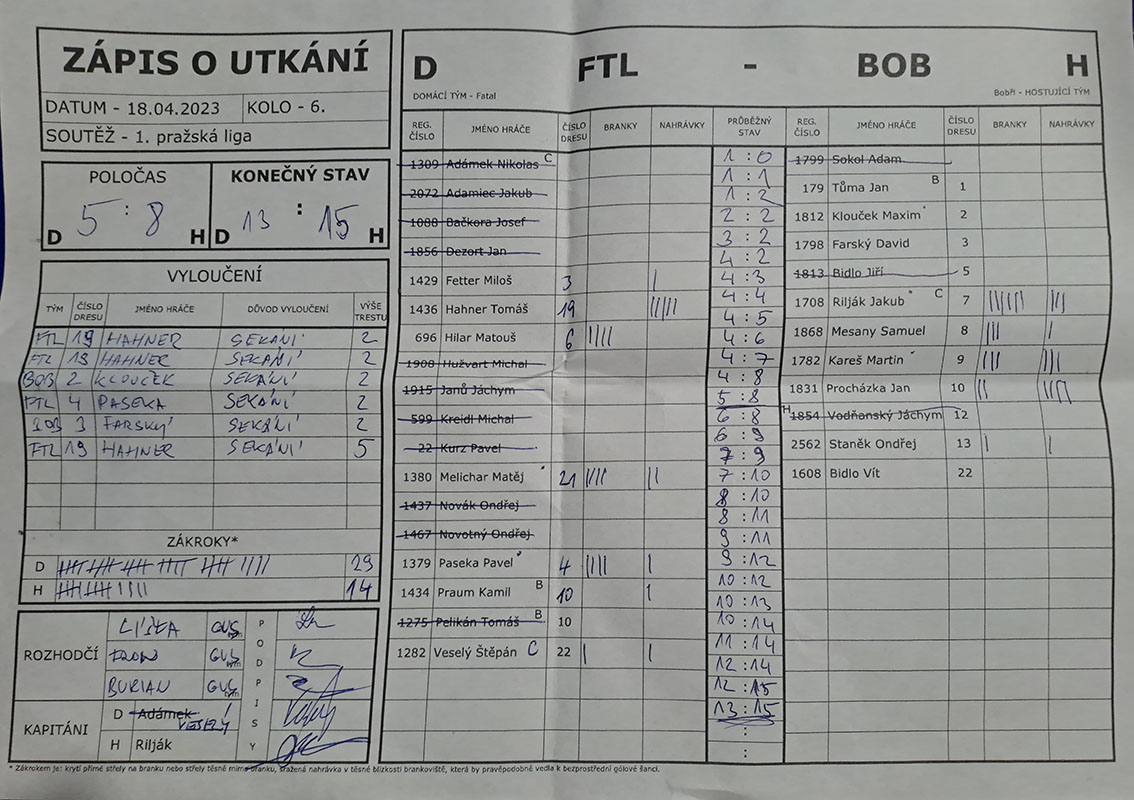 ZÁPIS O UTKÁNÍ
DATUM - 18.04.2023 KOLO - 6.
SOUTĚŽ - 1. pražská liga
POLOČAS KONEČNÝ STAV
D 5 : 8 H D 13 : 15 H
VYLOUČENÍ
TÝM ČÍSLO DRESU JMÉNO HRÁČE DŮVOD VYLOUČENÍ VÝŠE TRESTU
FTL 19 HAHNER SEKÁNÍ 2
FTL 19 HAHNER SEKÁNÍ 2
BOB 2 KLOUČEK SEKÁNÍ 2
FTL 4 PASEKA SEKÁNÍ 2
BOB 3 FARSKÝ SEKÁNÍ 2
FTL 19 HAHNER SEKÁNÍ 5
ZÁKROKY*
D 29
H 14
ROZHODČÍ
LIŠKA
BURIAN
PODPISY
KAPITÁNI
D Adámek VESELÝ
H Rilják
D FTL - BOB H
DOMÁCÍ TÝM - Fatal Bobři - HOSTUJÍCÍ TÝM
REG. ČÍSLO JMÉNO HRÁČE ČÍSLO DRESU BRANKY NAHRÁVKY
1309 Adámek Nikolas C
2072 Adamiec Jakub
1088 Bačkora Josef
1856 Dezort Jan
1429 Fetter Miloš 3 |
1436 Hahner Tomáš 19 ||||||
696 Hilar Matouš 6 ||||
1908 Hužvart Michal
1915 Janů Jáchym
599 Kreidl Michal
22 Kurz Pavel
1380 Melichar Matěj 21 |||| ||
1437 Novák Ondřej
1467 Novotný Ondřej
1379 Paseka Pavel 4 |||| |
1434 Praum Kamil B 10 |
1275 Pelikán Tomáš B 10
1282 Veselý Štěpán C 22 | |
PRŮBĚŽNÝ STAV
1 : 0
1 : 1
1 : 2
2 : 2
3 : 2
4 : 2
4 : 3
4 : 4
4 : 5
4 : 6
4 : 7
4 : 8
5 : 8
6 : 8
6 : 9
7 : 9
7 : 10
8 : 10
8 : 11
9 : 11
9 : 12
10 : 12
10 : 13
10 : 14
11 : 14
12 : 14
12 : 15
13 : 15
:
:
REG. ČÍSLO JMÉNO HRÁČE ČÍSLO DRESU BRANKY NAHRÁVKY
1799 Sokol Adam
179 Tůma Jan B 1
1812 Klouček Maxim 2
1798 Farský David 3
1813 Bidlo Jiří 5
1708 Rilják Jakub C 7
1868 Mesany Samuel 8 ||| |
1782 Kareš Martin 9 ||| |||
1831 Procházka Jan 10 || ||||
H 1854 Vodňanský Jáchym 12
2562 Staněk Ondřej 13 | |
1608 Bidlo Vít 22
* Zákrokem je: krytí přímé střely na branku nebo střely těsně mimo branku, sražená nahrávka v těsné blízkosti brankoviště, která by pravěpodobně vedla k bezprostřední gólové šanci.